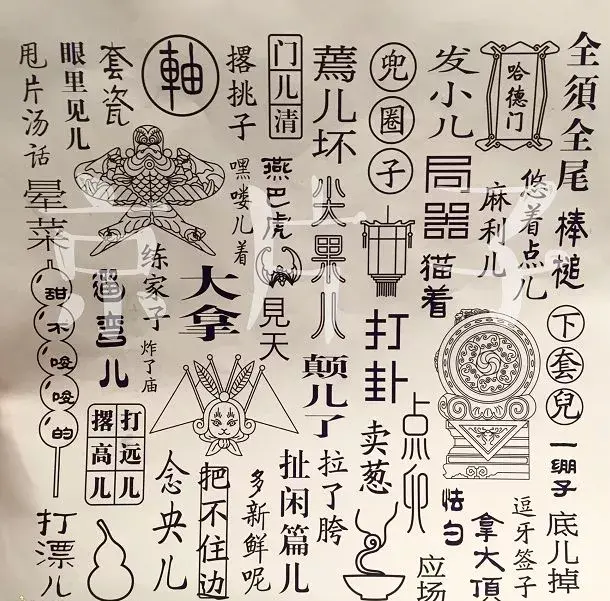 全須全尾
棒槌
下套兒
一绷子
底儿掉
哈德门
悠着点儿
麻利儿
逗牙签子
发小儿
局器
猫着
拿大頂
怯勺
应场
兜圈子
打卦
点卯
卖葱
蔫儿坏
尖果儿
颠儿了
拉了胯
门儿清
燕巴虎
見天
扯闲篇儿
撂挑子
嘿喽儿着
大拿
多新鲜呢
把不住边
軸
练家子
炸了庙
念央儿
套瓷
遛弯儿
打远儿
撂高儿
眼里见儿
甩片汤话
晕菜
甜不唆唆的
打漂儿
京片子